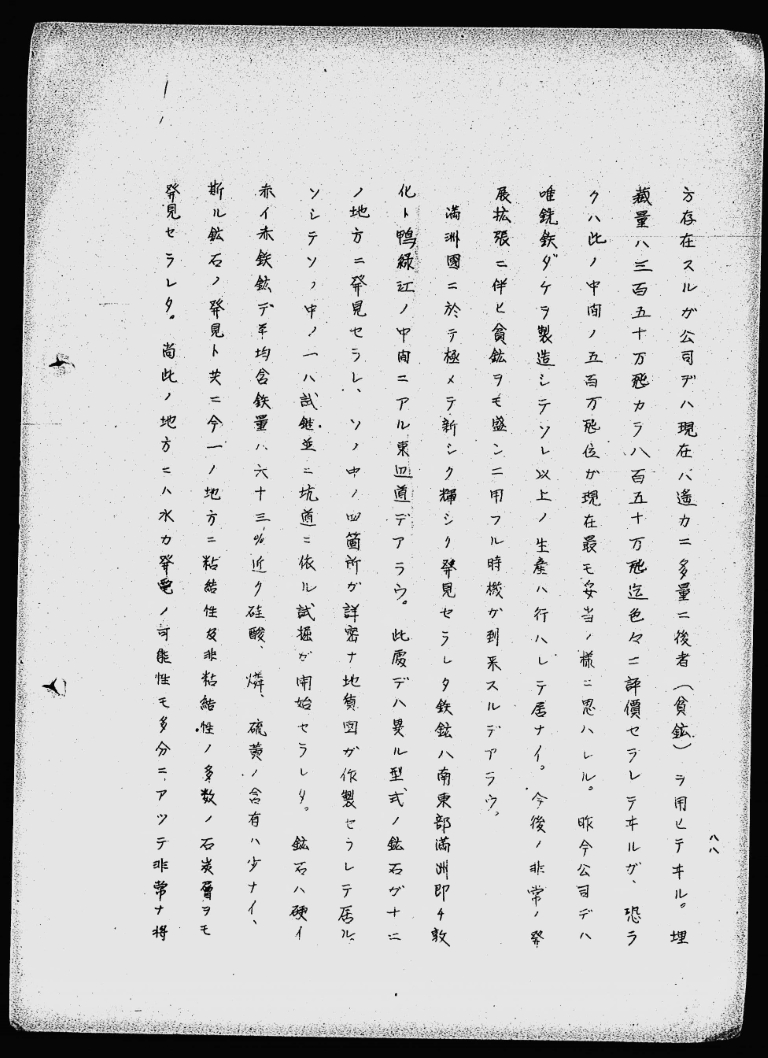 八八
方存在スルガ公司デハ現在ハ遙カニ多量ニ後者（貧鉱）ヲ用ヒテヰル。埋
蔵量ハ三百五十万瓲カラ八百五十万瓲迄色々ニ評價セラレテヰルガ、恐ラ
クハ此ノ中間ノ五百万瓲位が現在最モ妥当ノ様ニ思ハレル。昨今公司デハ
唯銑鉄ダケヲ製造シテソレ以上ノ生産ハ行ハレテ居ナイ。今後ノ非常ノ発
展拡張ニ伴ヒ貧鉱ヲモ盛ンニ用フル時機が到来スルデアラウ。
満洲國ニ於テ極メテ新シク輝シク発見セラレタ鉄鉱ハ南東部満洲即チ敦
化ト鴨緑江ノ中間ニアル東辺道デアラウ。此處デハ異ル型式ノ鉱石ガ十ニ
ノ地方ニ発見セラレ、ソノ中ノ四箇所が詳密ナ地質図が作製セラレテ居ル、
ソシテソノ中ノ一ハ試錐並ニ坑道ニ依ル試掘ガ開始セラレタ。鉱石ハ硬イ
赤イ赤鉄鉱デ平均含鉄量ハ六十三％近ク硅酸、燐、硫黄ノ含有ハ少ナイ、
斯ル鉱石ノ発見ト共ニ今一ノ地方ニ粘結性及非粘結性ノ多数ノ石炭層ヲモ
発見セラレタ。尚此ノ地方ニハ水力発電ノ可能性モ多分ニアツテ非常ナ将